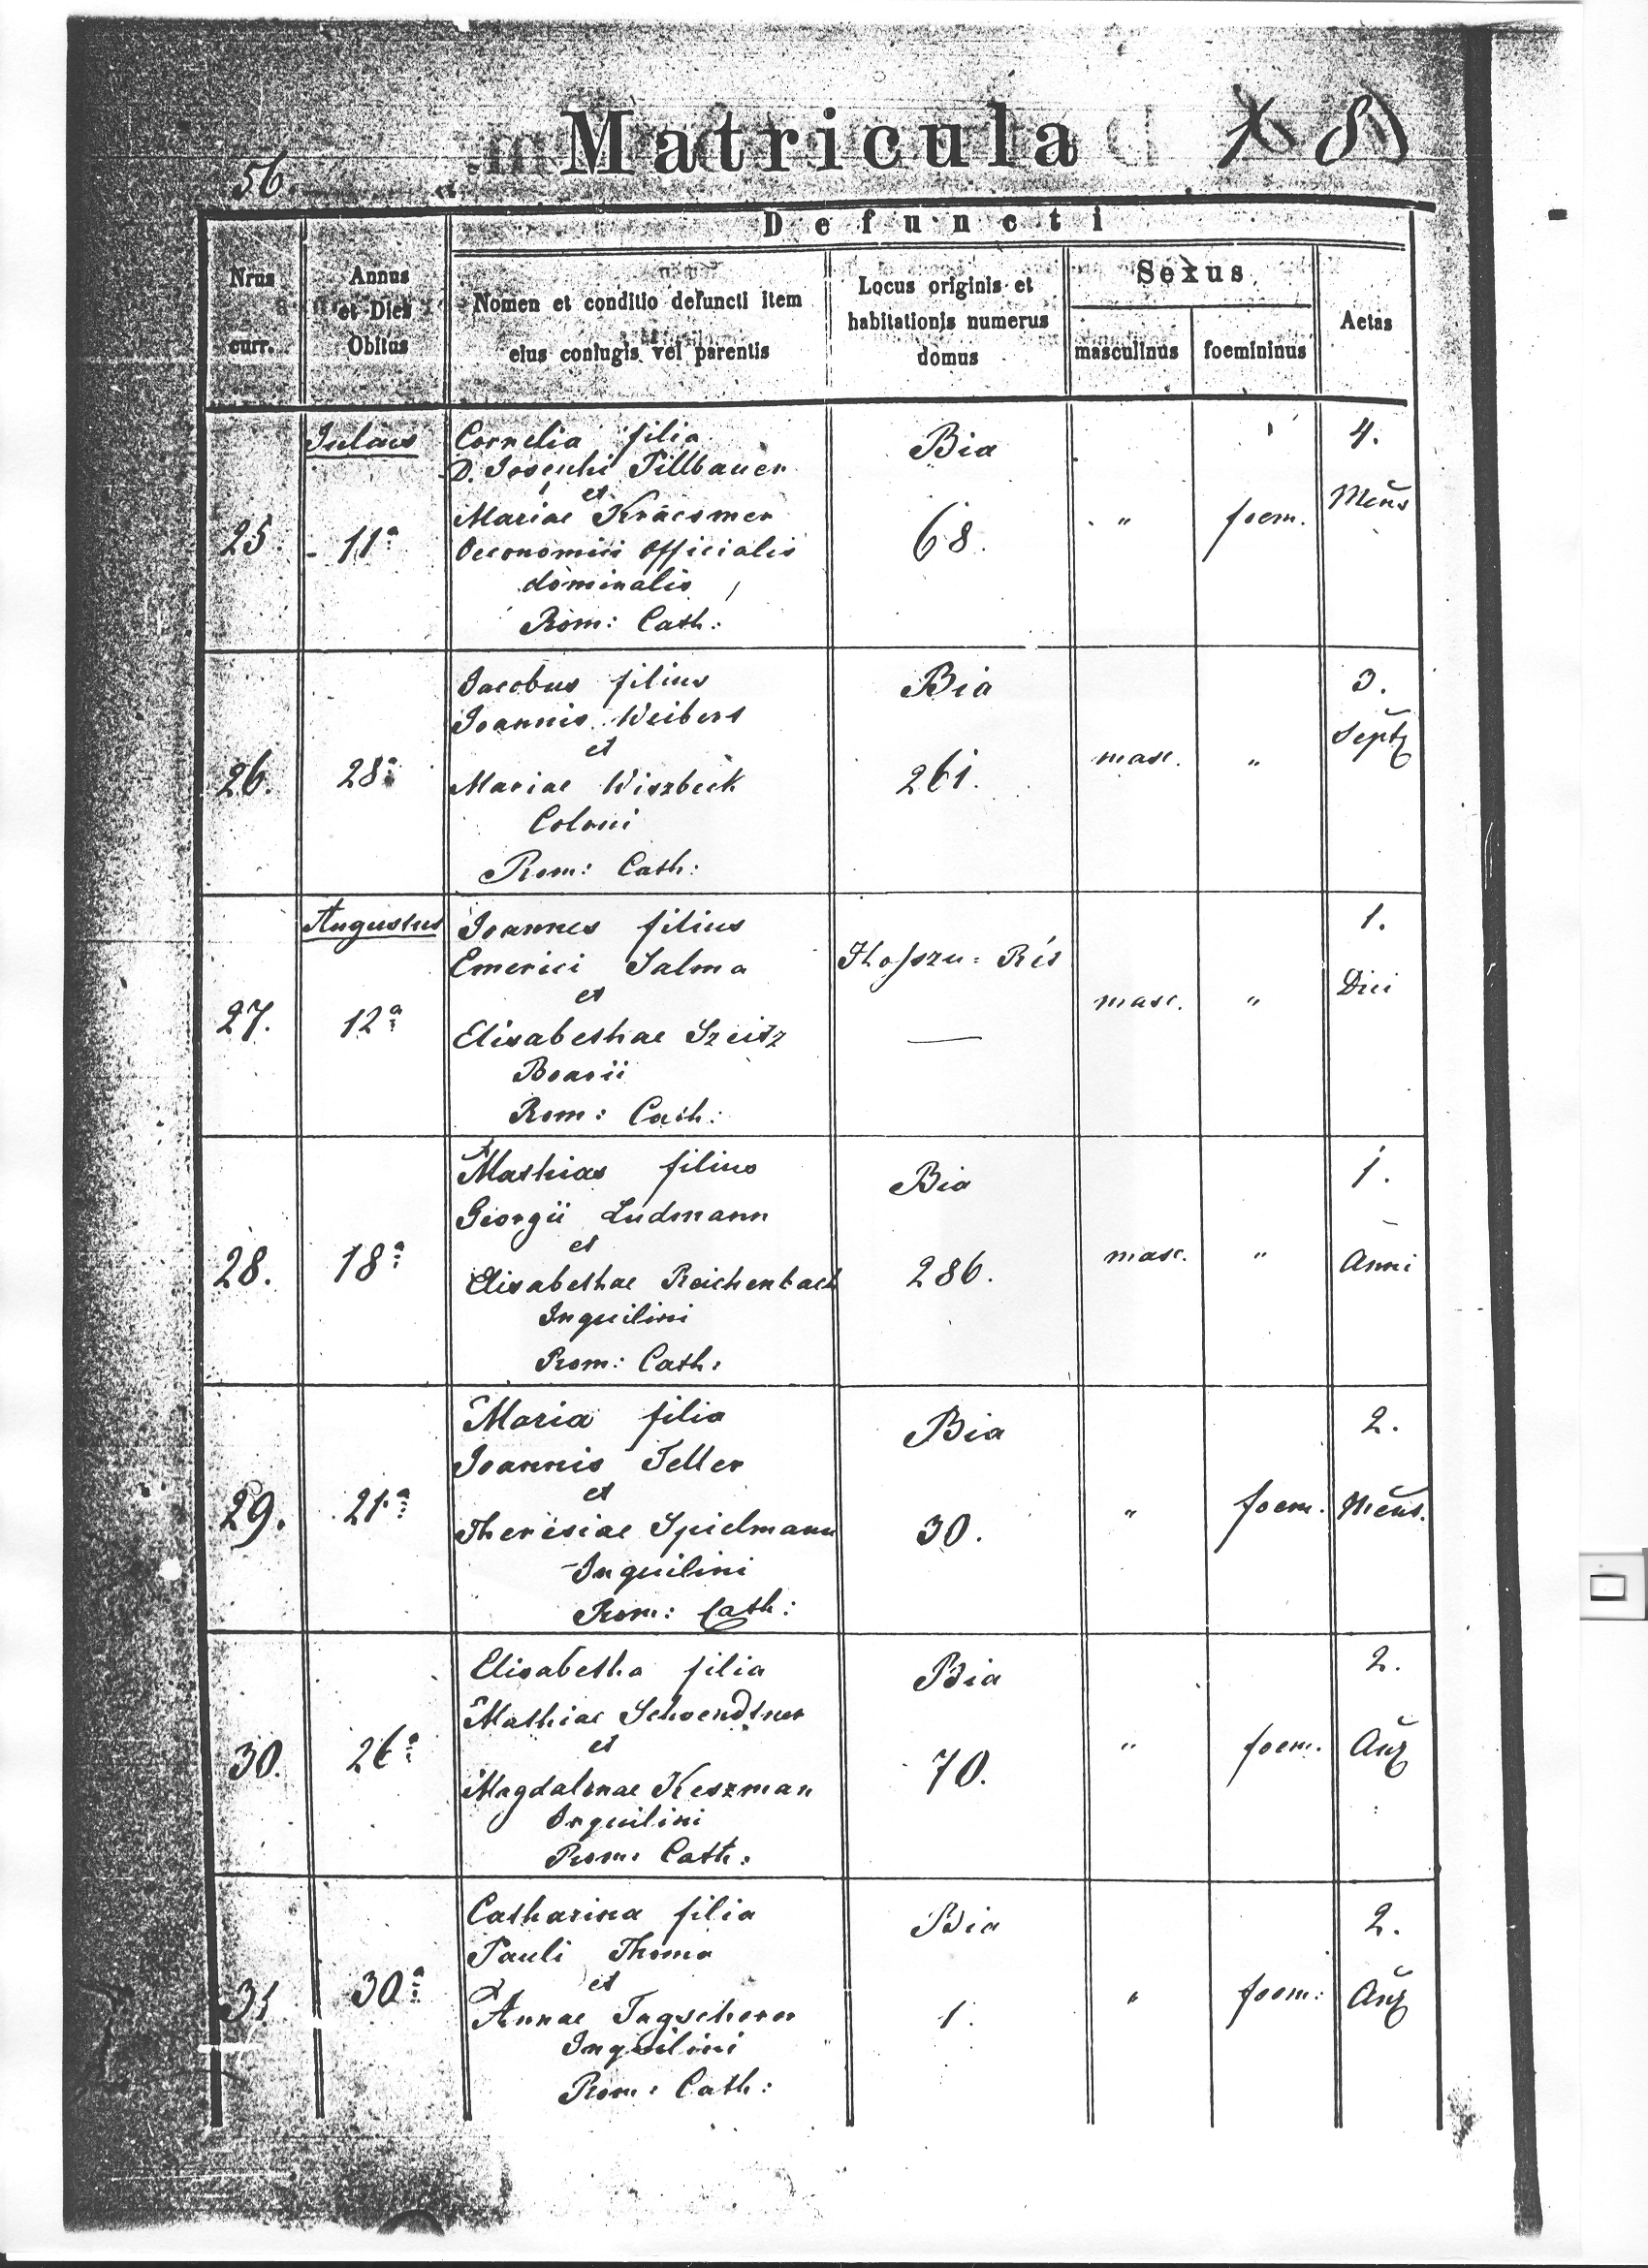 56.
Matricula
8)
Defuncti
Nrus curr.
Annus et Dies Obitus
Nomen et conditio defuncti item eius coniugis vel parentis
Locus originis et habitationis numerus domus
Sexus
masculinus
foemininus
Aetas
Julius
Cornelia filia
D. Josephi Pillbauer
et
Mariae Kraesmer
Oeconomici officialis
dominalis
Rom: Cath:
25.
11ª
Bia
68.
"
foem.
4.
Mens
Jacobus filius
Joannis Weibert
et
Mariae Wiszbeck
Coloni
Rom: Cath:
26.
28ª
Bia
261.
masc.
"
3.
Sept
Augustus
Joannes filius
Emerici Salma
et
Elisabethae Szeitz
Boarii
Rom: Cath:
27.
12ª
Hoszu-Rét
—
masc.
"
1.
Diei
Mathias filius
Georgii Ludmann
et
Elisabethae Reichenbach
Inquilini
Rom: Cath:
28.
18ª
Bia
286.
masc.
"
1.
Anni
Maria filia
Joannis Teller
et
Theresiae Spielmann
Inquilini
Rom: Cath:
29.
21ª
Bia
30.
"
foem.
2.
Mens.
Elisabetha filia
Mathiae Schoendtner
et
Magdalenae Keszman
Inquilini
Rom: Cath:
30.
26ª
Bia
70.
"
foem.
2.
Catharina filia
Pauli Thoma
et
Annae Tagscherer
Inquilini
Rom: Cath:
31
30ª
Bia
1.
"
foem:
2.